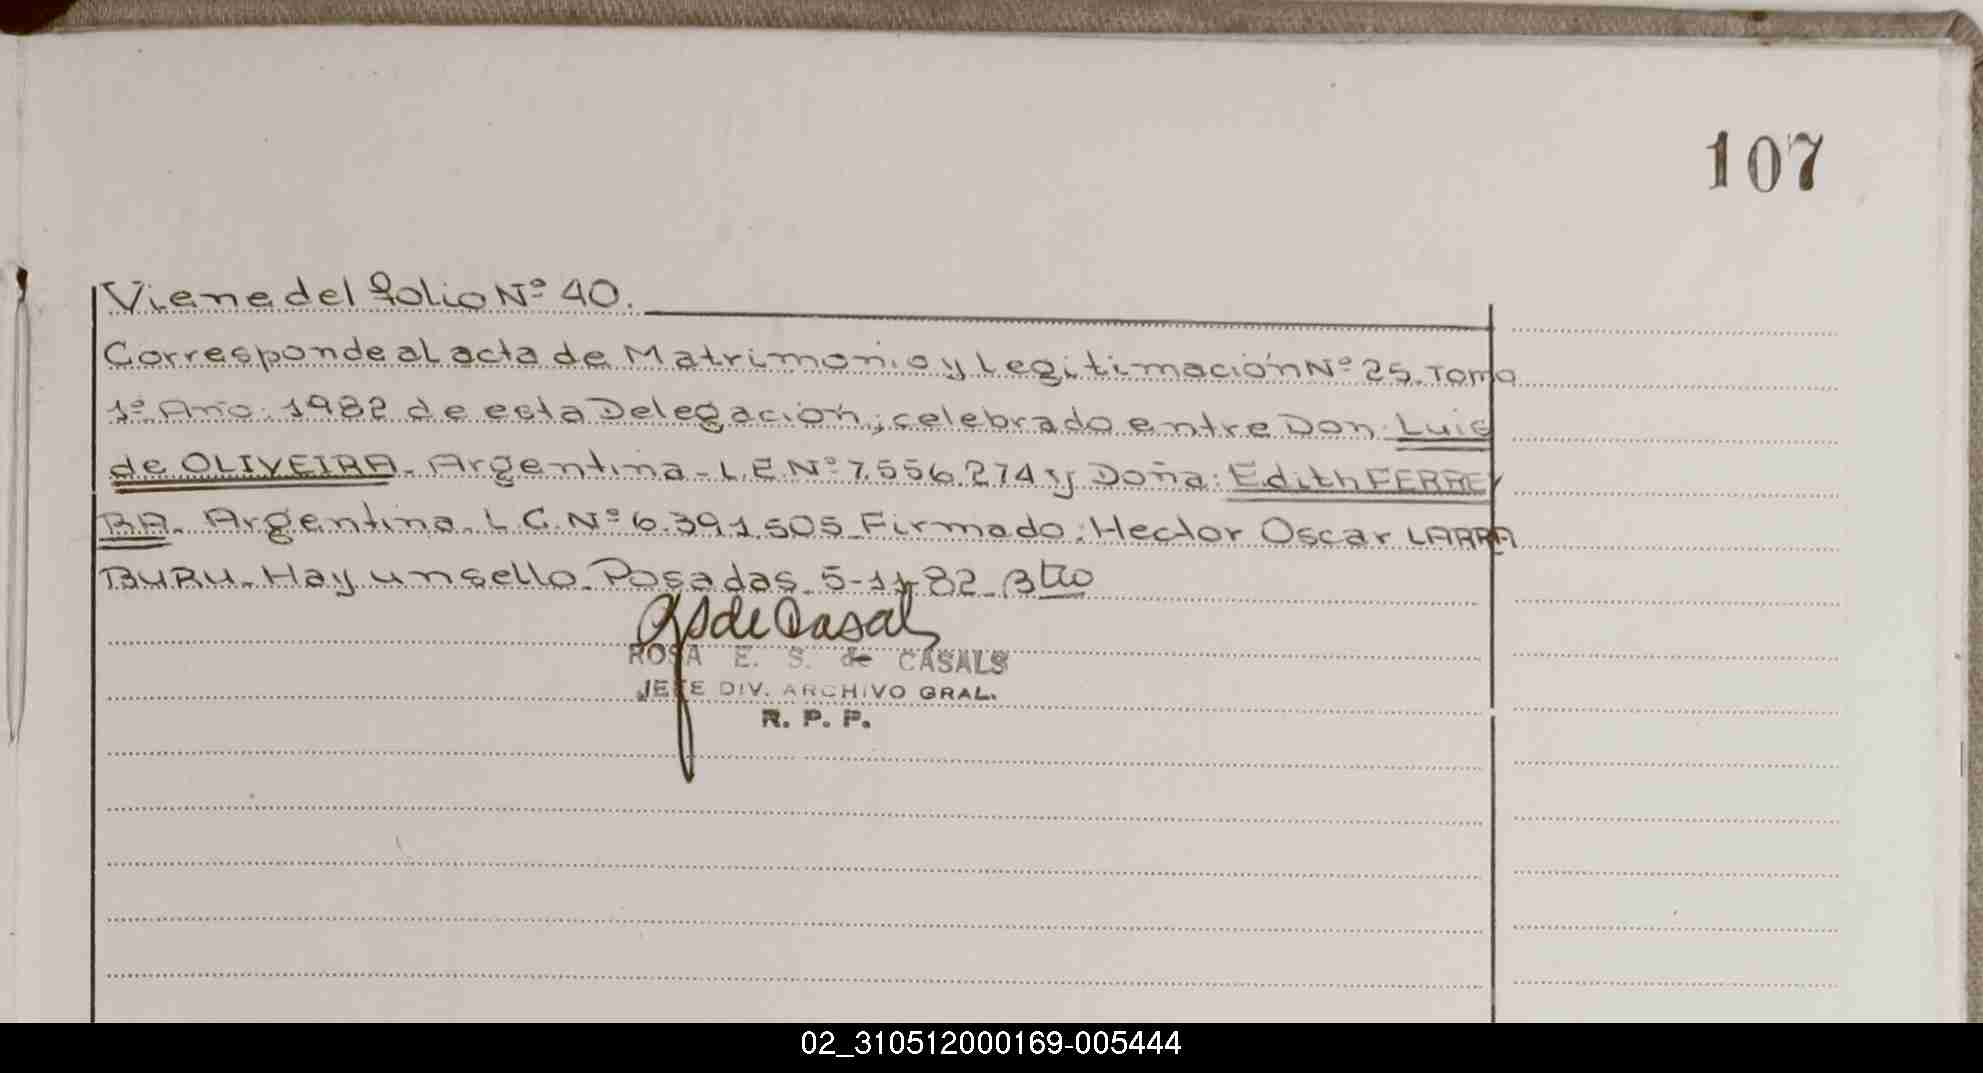 107
Viene del folio Nº 40.
Corresponde al acta de Matrimonio y Legitimación Nº 25. Tomo
1º Año: 1982 de esta Delegación; celebrado entre Don: Luis
de OLIVEIRA. Argentina - L.E. Nº 7.556.274 y Doña: Edith FERREY
RA. Argentina. L.C. Nº 6.391.505. Firmado: Hector Oscar LARRA
BURU. Hay un sello. Posadas. 5-11-82.
ROSA E. S. de CASALS
JEFE DIV. ARCHIVO GRAL.
R. P. P.
02_310512000169-005444